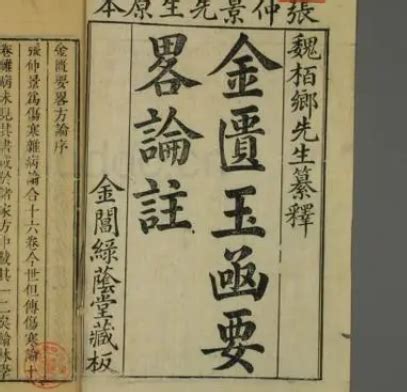 張仲景先生原本
魏栢鄉先生纂釋
金匱玉凾要
畧論註
金閶綠蔭堂藏板
金匱要畧方論序
張仲景爲傷寒雜病論合十六卷今世但傳傷寒論十
卷雜病未見其書或於諸家方中載其一二矣翰林學